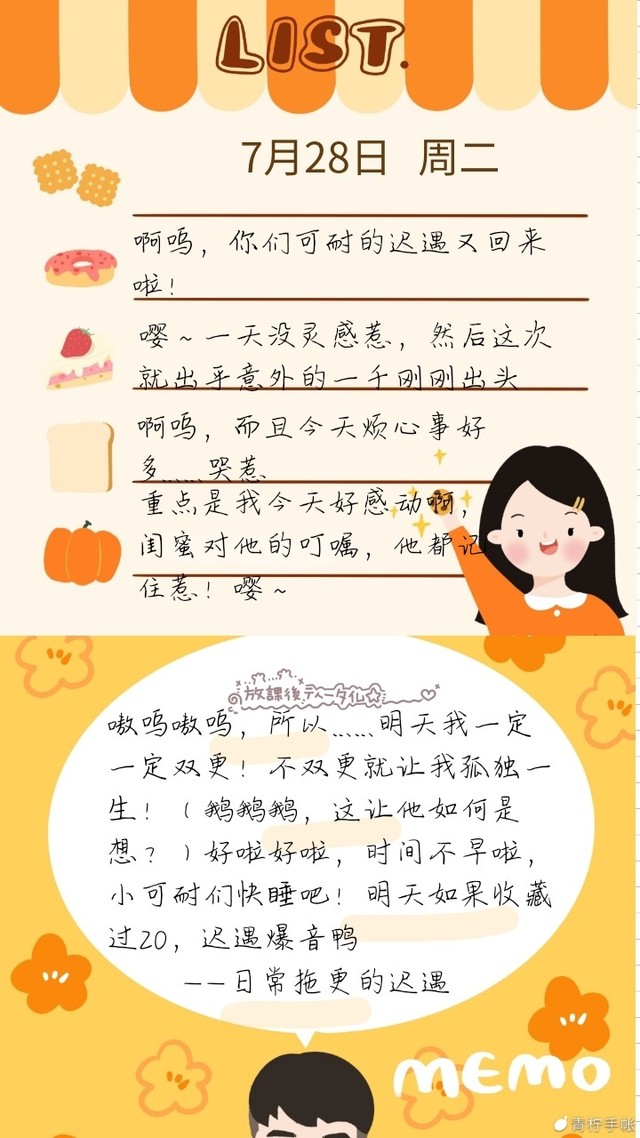 LIST.
7月28日 周二
啊呜，你们可耐的迟遇又回来
啦！
嘤~一天没灵感惹，然后这次
就出乎意外的一千刚刚出头
啊呜，而且今天烦心事好
多……哭惹
重点是我今天好感动啊，
闺蜜对他的叮嘱，他都记
住惹！嘤~
放課後ティータイム
嗷呜嗷呜，所以……明天我一定
一定双更！不双更就让我孤独一
生！（鹅鹅鹅，这让他如何是
想？）好啦好啦，时间不早啦，
小可耐们快睡吧！明天如果收藏
过20，迟遇爆音鸭
——日常拖更的迟遇
MEMO
青柠手帐